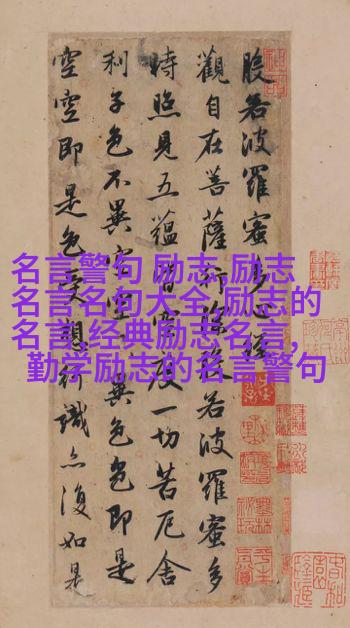 般若波羅蜜多心經
觀自在菩薩行深般若波羅蜜多
時照見五蘊皆空度一切苦厄舍
利子色不異空空不異色色即是
空空即是色受想行識亦復如是
名言警句 励志,励志
名言名句大全,励志的
名言,经典励志名言,
勤学励志的名言警句